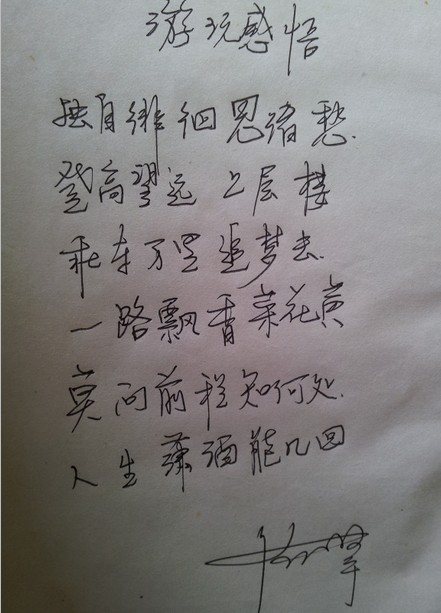 游玩感悟
独自徘徊思绪愁.
登高望远上层楼
乘车万里追梦去.
一路飘香菜花黄
莫问前程知何处.
人生潇洒能几回